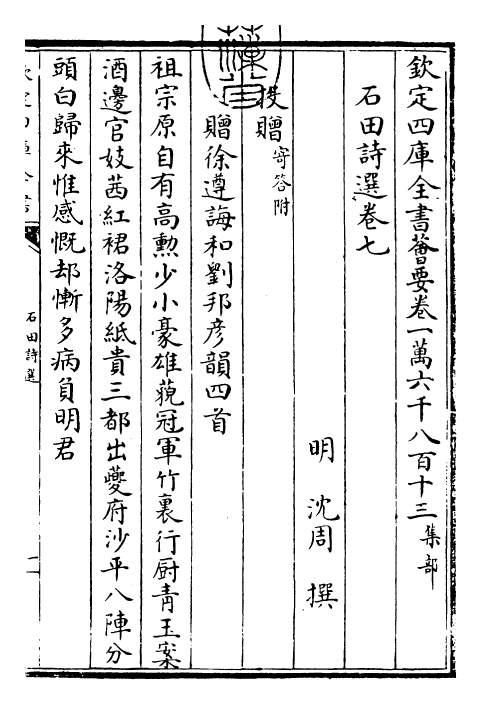 欽定四庫全書薈要卷一萬六千八百十三集部
石田詩選卷七
明 沈周 撰
投贈寄答附
贈徐遵誨和劉邦彦韻四首
祖宗原自有高勲少小豪雄藐冠軍竹裏行厨青玉案
酒邊官妓茜紅裙洛陽紙貴三都出夔府沙平八陣分
頭白歸來惟感慨却慚多病負明君
欽定四庫全書
石田詩選
一